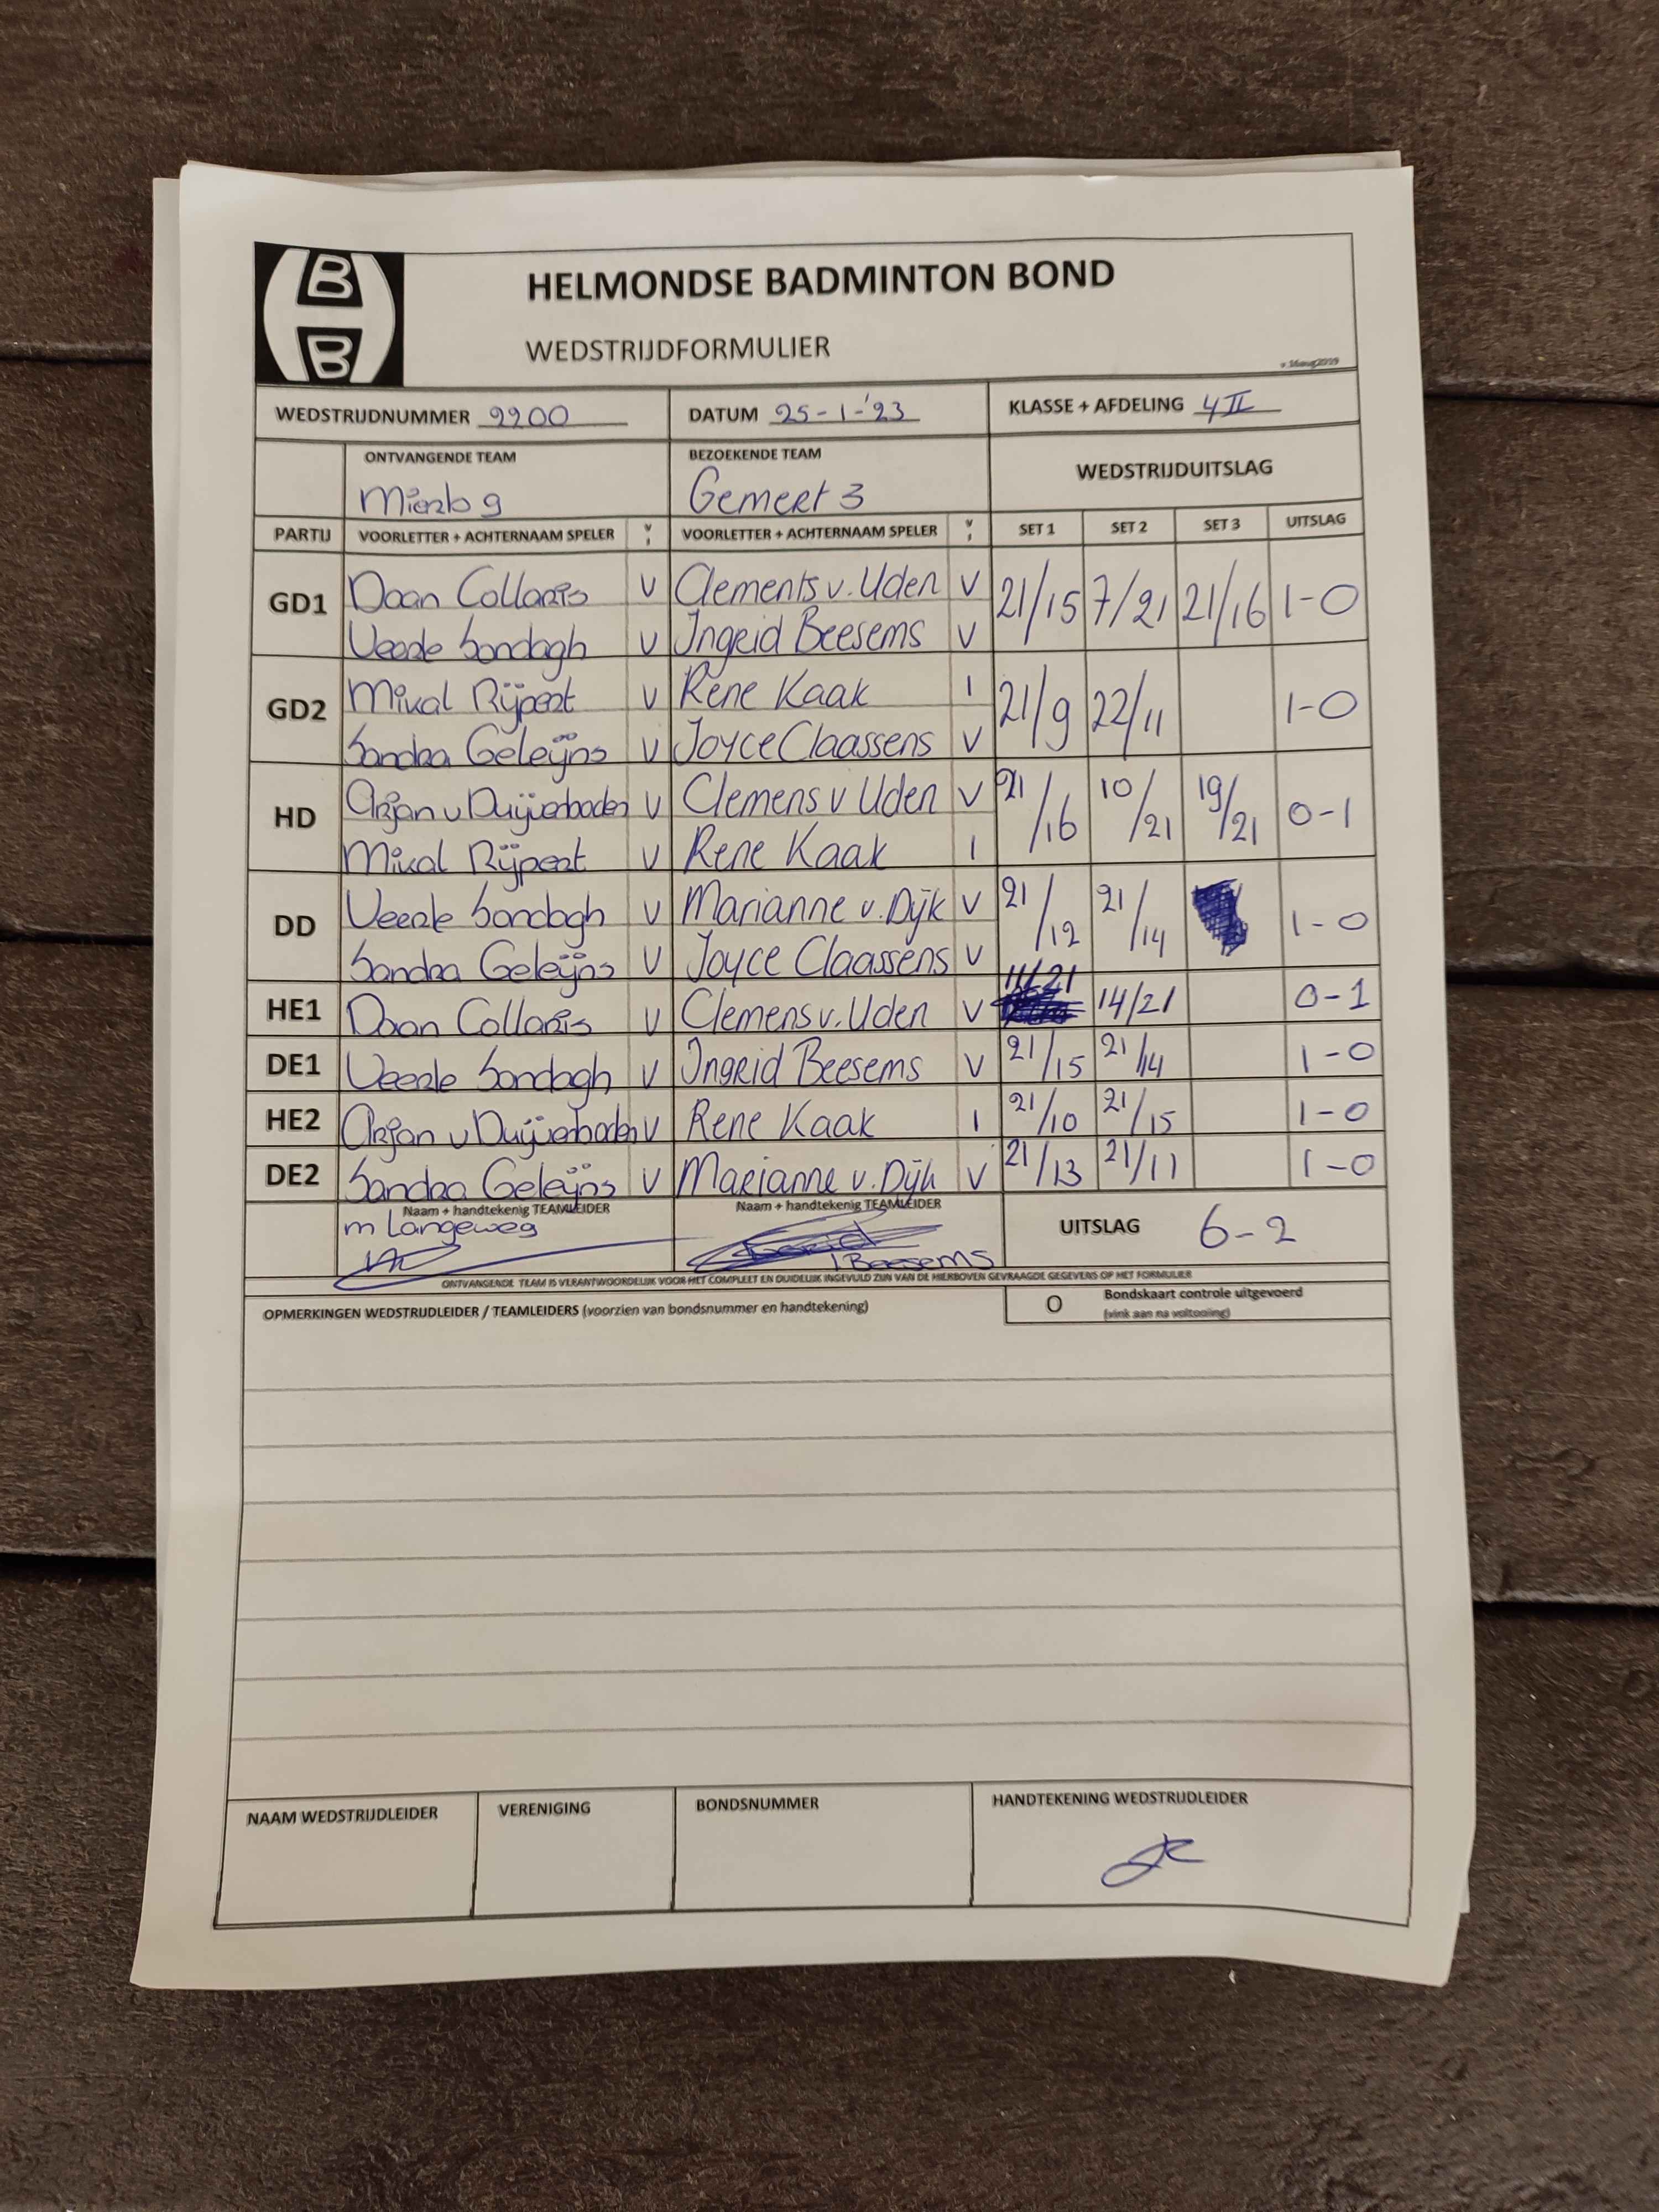 B
B
HELMONDSE BADMINTON BOND
WEDSTRIJDFORMULIER
v.16aug2019
WEDSTRIJDNUMMER 2200 DATUM 25-1-'23 KLASSE + AFDELING 4 II
ONTVANGENDE TEAM BEZOEKENDE TEAM WEDSTRIJDUITSLAG
Mierlo 9 Gemert 3
PARTIJ VOORLETTER + ACHTERNAAM SPELER V I VOORLETTER + ACHTERNAAM SPELER V I SET 1 SET 2 SET 3 UITSLAG
GD1 Daan Collaris V Clements v. Uden V 21/15 7/21 21/16 1-0
Veerle Sondagh V Ingrid Beesems V
GD2 Mical Rijpert V Rene Kaak I 21/9 22/11 1-0
Sandra Geleijns V Joyce Claassens V
HD Arjan v Duijvenboden V Clemens v Uden V 21/16 10/21 19/21 0-1
Mical Rijpert V Rene Kaak I
DD Veerle Sondagh V Marianne v. Dijk V 21/12 21/14 1-0
Sandra Geleijns V Joyce Claassens V
HE1 Daan Collaris V Clemens v. Uden V 11/21 14/21 0-1
DE1 Veerle Sondagh V Ingrid Beesems V 21/15 21/14 1-0
HE2 Arjan v Duijvenboden V Rene Kaak I 21/10 21/15 1-0
DE2 Sandra Geleijns V Marianne v. Dijk V 21/13 21/11 1-0
Naam + handtekenig TEAMLEIDER Naam + handtekenig TEAMLEIDER UITSLAG 6-2
m Langeweg
I Beesems
ONTVANGENDE TEAM IS VERANTWOORDELIJK VOOR HET COMPLEET EN DUIDELIJK INGEVULD ZIJN VAN DE HIERBOVEN GEVRAAGDE GEGEVENS OP HET FORMULIER
OPMERKINGEN WEDSTRIJDLEIDER / TEAMLEIDERS (voorzien van bondsnummer en handtekening) O Bondskaart controle uitgevoerd
(vink aan na voltooiing)
NAAM WEDSTRIJDLEIDER VERENIGING BONDSNUMMER HANDTEKENING WEDSTRIJDLEIDER